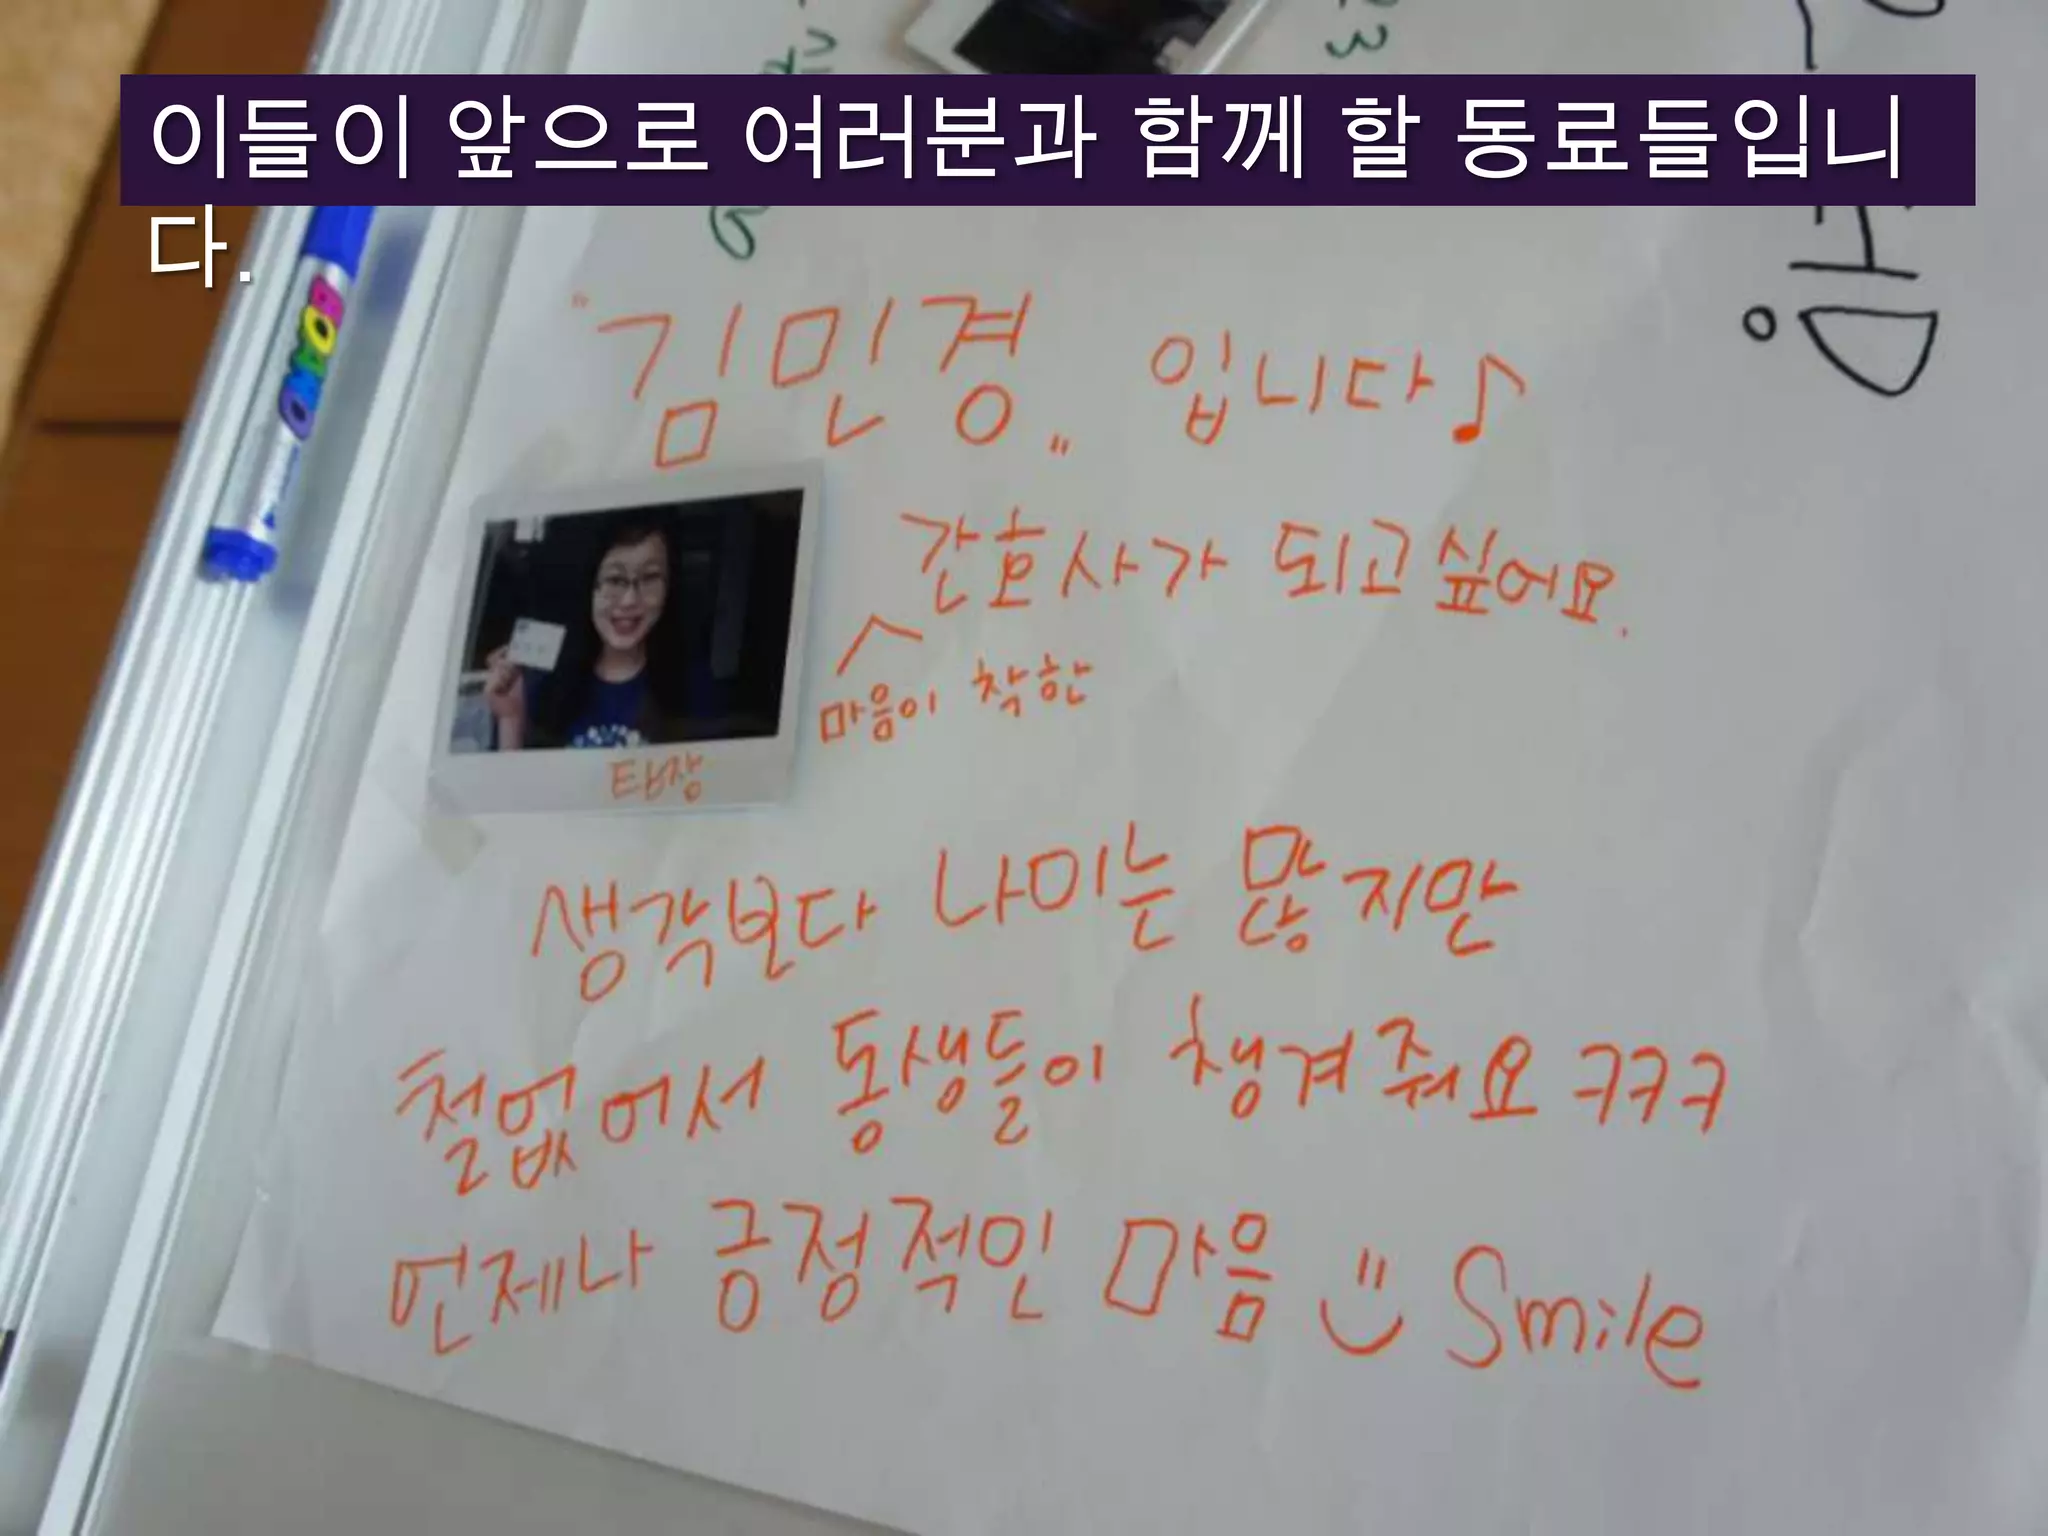 이들이 앞으로 여러분과 함께 할 동료들입니
다.
"김민경" 입니다♪
간호사가 되고싶어요.
마음이 착한
팀장
생각보다 나이는 많지만
철없어서 동생들이 챙겨줘요 ㅋㅋㅋ
언제나 긍정적인 마음 Smile